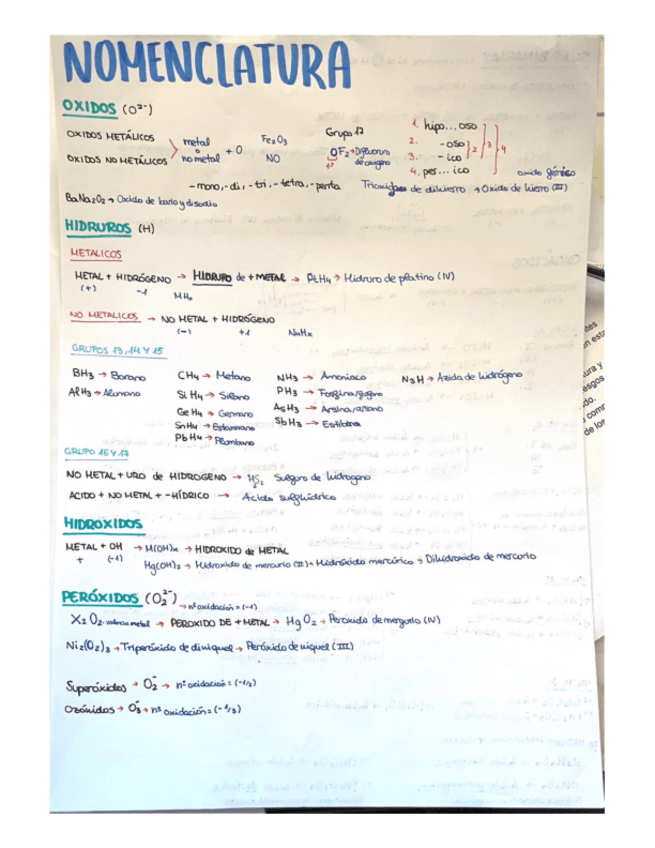 NOMENCLATURA
OXIDOS (O²⁻)
OXIDOS METÁLICOS
OXIDOS NO METÁLICOS
metal
o
no metal
+ O
Fe₂O₃
NO
Grupo 17
OF₂ → Difluoruro
de oxígeno
1. hipo... oso
2. - oso
3. - ico
4. per... ico
2
3
4
oxido férrico
- mono, - di, - tri, - tetra, - penta
Trióxido de dihierro → Oxido de hierro (III)
BaNa₂O₂ → Oxido de bario y disodio
HIDRUROS (H)
METALICOS
METAL + HIDRÓGENO → HIDRURO de + METAL → PtH₄ → Hidruro de platino (IV)
(+) -1 MHx
NO METALICOS → NO METAL + HIDRÓGENO
(-) +1 NmHx
GRUPOS 13, 14 Y 15
BH₃ → Borano
AlH₃ → Alumano
CH₄ → Metano
SiH₄ → Silano
GeH₄ → Germano
SnH₄ → Estannano
PbH₄ → Plumbano
NH₃ → Amoniaco
PH₃ → Fosfina/fosfano
AsH₃ → Arsina/arsano
SbH₃ → Estibina
N₃H → Azida de hidrógeno
GRUPO 16 Y 17
NO METAL + URO de HIDROGENO → HS₂ Sulfuro de hidrogeno
ACIDO + NO METAL + -HÍDRICO → Acido sulfhídrico
HIDROXIDOS
METAL + OH → M(OH)x → HIDROXIDO de METAL
+ (-1) Hg(OH)₂ → Hidroxido de mercurio (II) → Hidróxido mercúrico → Dihidroxido de mercurio
PERÓXIDOS (O₂²⁻)
→ nº oxidación = (-1)
X₂ O₂·valencia metal → PEROXIDO DE + METAL → HgO₂ → Peroxido de mercurio (IV)
Ni₂(O₂)₃ → Triperóxido de diniquel → Peróxido de niquel (III)
Superóxidos → O₂⁻ → nº oxidación = (-1/2)
Ozónidos → O₃⁻ → nº oxidación = (-1/3)